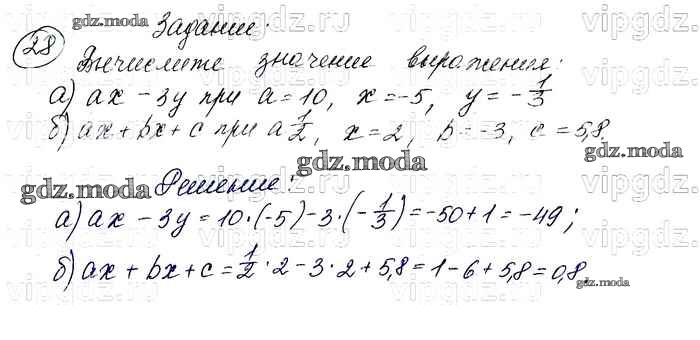 28 Задание:
Вычислите значение выражения:
а) ax - 3y при a = 10, x = -5, y = -1/3
б) ax + bx + c при a 1/2, x = 2, b = -3, c = 5,8.
Решение:
а) ax - 3y = 10·(-5) - 3·(-1/3) = -50 + 1 = -49;
б) ax + bx + c = 1/2 · 2 - 3 · 2 + 5,8 = 1 - 6 + 5,8 = 0,8.
gdz.moda
gdz.moda
gdz.moda
gdz.moda
gdz.moda
vipgdz.ru